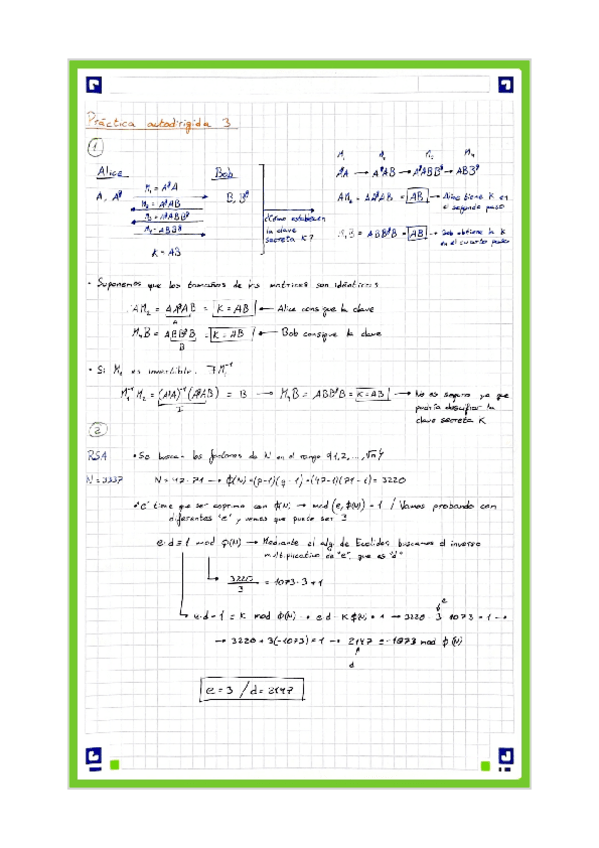 Práctica autodirigida 3
1
Alice Bob
A, A^g M₁ = A^gA B, B^g
M₂ = A^gAB
M₃ = A^gABB^g
M₄ = ABB^g
K = AB
¿Cómo establecen la clave secreta K?
M₁ M₂ M₃ M₄
A^gA → A^gAB → A^gABB^g → ABB^g
AM₂ = AA^gAB = AB → Alice tiene K en el segundo paso
M₄B = ABB^gB = AB → Bob obtiene la K en el cuarto paso
• Suponemos que los tamaños de las matrices son idénticos
AM₂ = AA^gAB = K = AB ← Alice consigue la clave
A
M₄B = ABB^gB = K = AB ← Bob consigue la clave
B
• Si M₁ es invertible, ∃M₁⁻¹
M₁⁻¹M₂ = (A^gA)⁻¹(A^gAB) = B → M₄B = ABB^gB = K = AB → No es seguro ya que
I
podría descifrar la
clave secreta K
2
RSA • Se buscan los factores de N en el rango {1, 2, ..., √n}
N = 3337 N = 47·71 → ϕ(N) = (p-1)(q-1) = (47-1)(71-1) = 3220
• "e" tiene que ser coprimo con ϕ(N) → mcd(e, ϕ(N)) = 1 / Vamos probando con
diferentes "e", vemos que puede ser 3
e·d ≡ 1 mod ϕ(N) → Mediante el alg. de Euclides, buscamos el inverso
multiplicativo de "e", que es "d"
3220/3 = 1073·3+1
e·d-1 = K mod ϕ(N) → e·d - Kϕ(N) = 1 → 3220 - 3·1073 = 1 →
e
→ 3220 + 3(-1073) = 1 → 2147 ≡ -1073 mod ϕ(N)
d
e = 3 / d = 2147